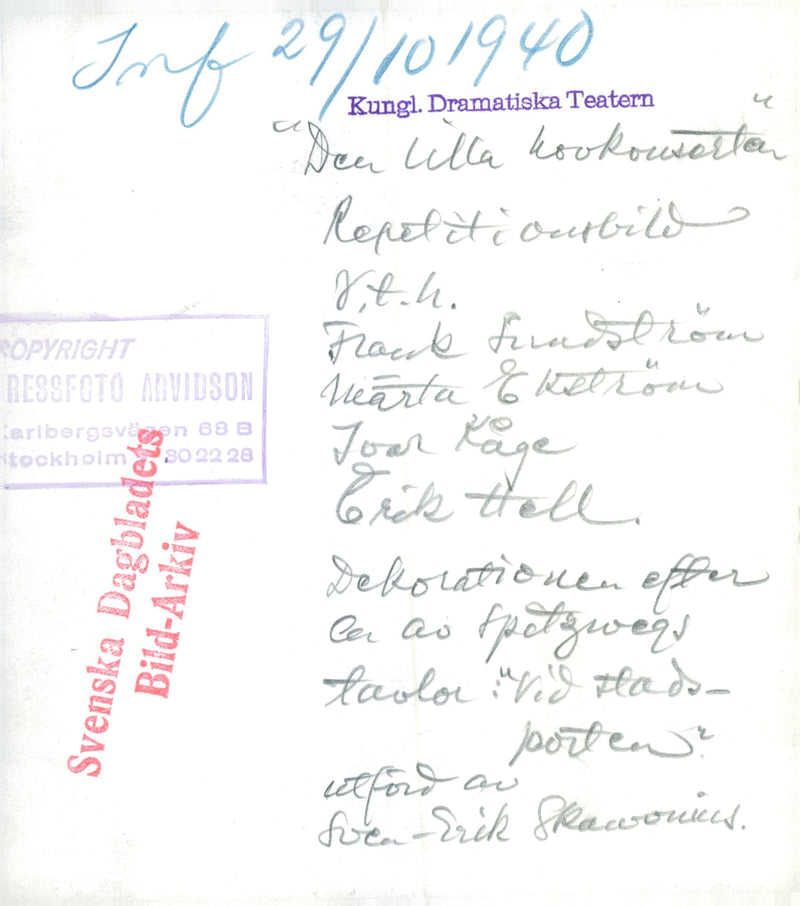 Inf 29/10 1940
Kungl. Dramatiska Teatern
"Den lilla hovkonserten"
Repetitionsbild
V.t.h.
Frank Sundström
Märta Ekström
Ivar Kåge
Erik Hell.
Dekorationen efter
en av Spitzwegs
tavlor: "Vid stads-
porten"
utförd av
Sven-Erik Skawonius.
OPYRIGHT
RESSFOTO ARVIDSON
arlbergsvägen 68 B
tockholm 302228
Svenska Dagbladets
Bild-Arkiv